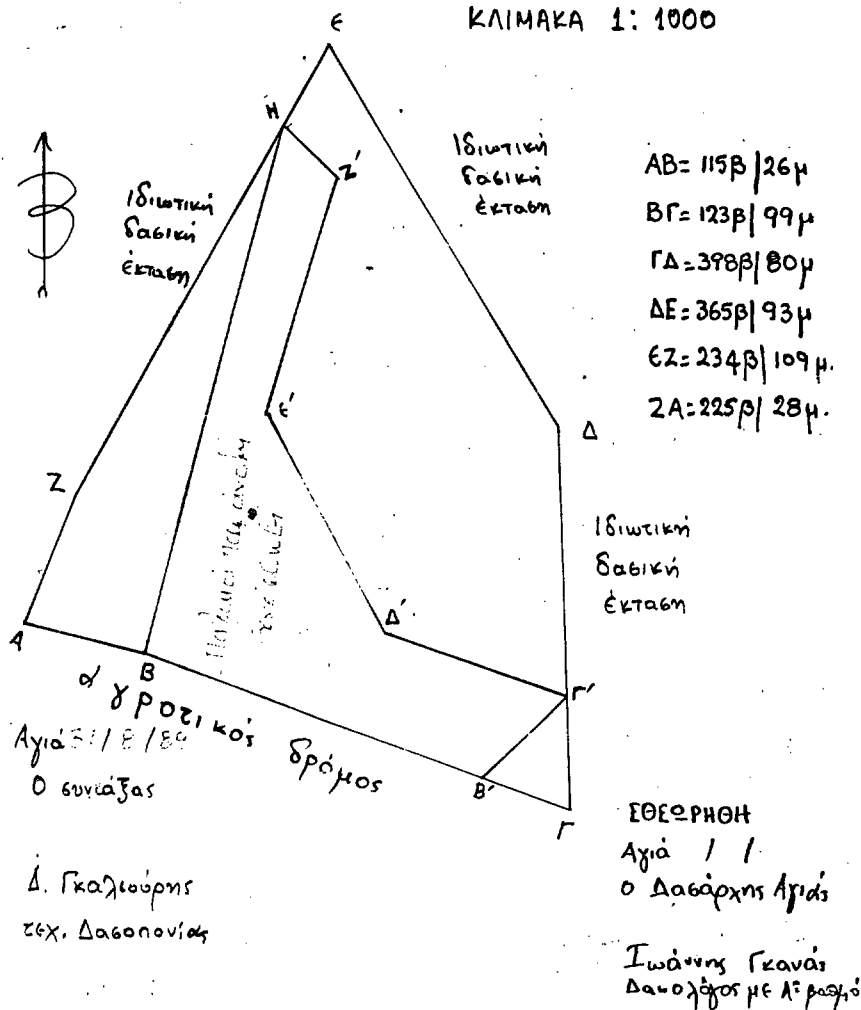 ΚΛΙΜΑΚΑ 1: 1000
Ε
Η
Ζ'
Β
Ιδιωτική
δασική
έκταση
Ιδιωτική
δασική
έκταση
ΑΒ= 115β|26μ
ΒΓ= 123β|99μ
ΓΔ=398β|80μ
ΔΕ=365β|93μ
ΕΖ=234β|109μ.
ΖΑ=225β|28μ.
Ε'
Δ
Ζ
Ιδιωτική
δασική
έκταση
Δ'
Α
Β
Γ'
αγροτικός δρόμος
Β'
Γ
Αγιά 31/8/89
Ο συντάξας
Δ. Γκαλιούρης
τεχ. Δασοπονίας
ΕΘΕΩΡΗΘΗ
Αγιά / /
ο Δασάρχης Αγιάς
Ιωάννης Γκανάς
Δασολόγος με Α: βαθμό